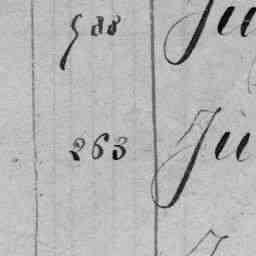 588 Ju
263 Ju